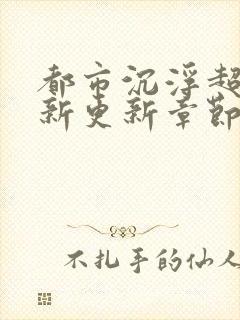 都市沉浮超
新更新章节
不扎手的仙人